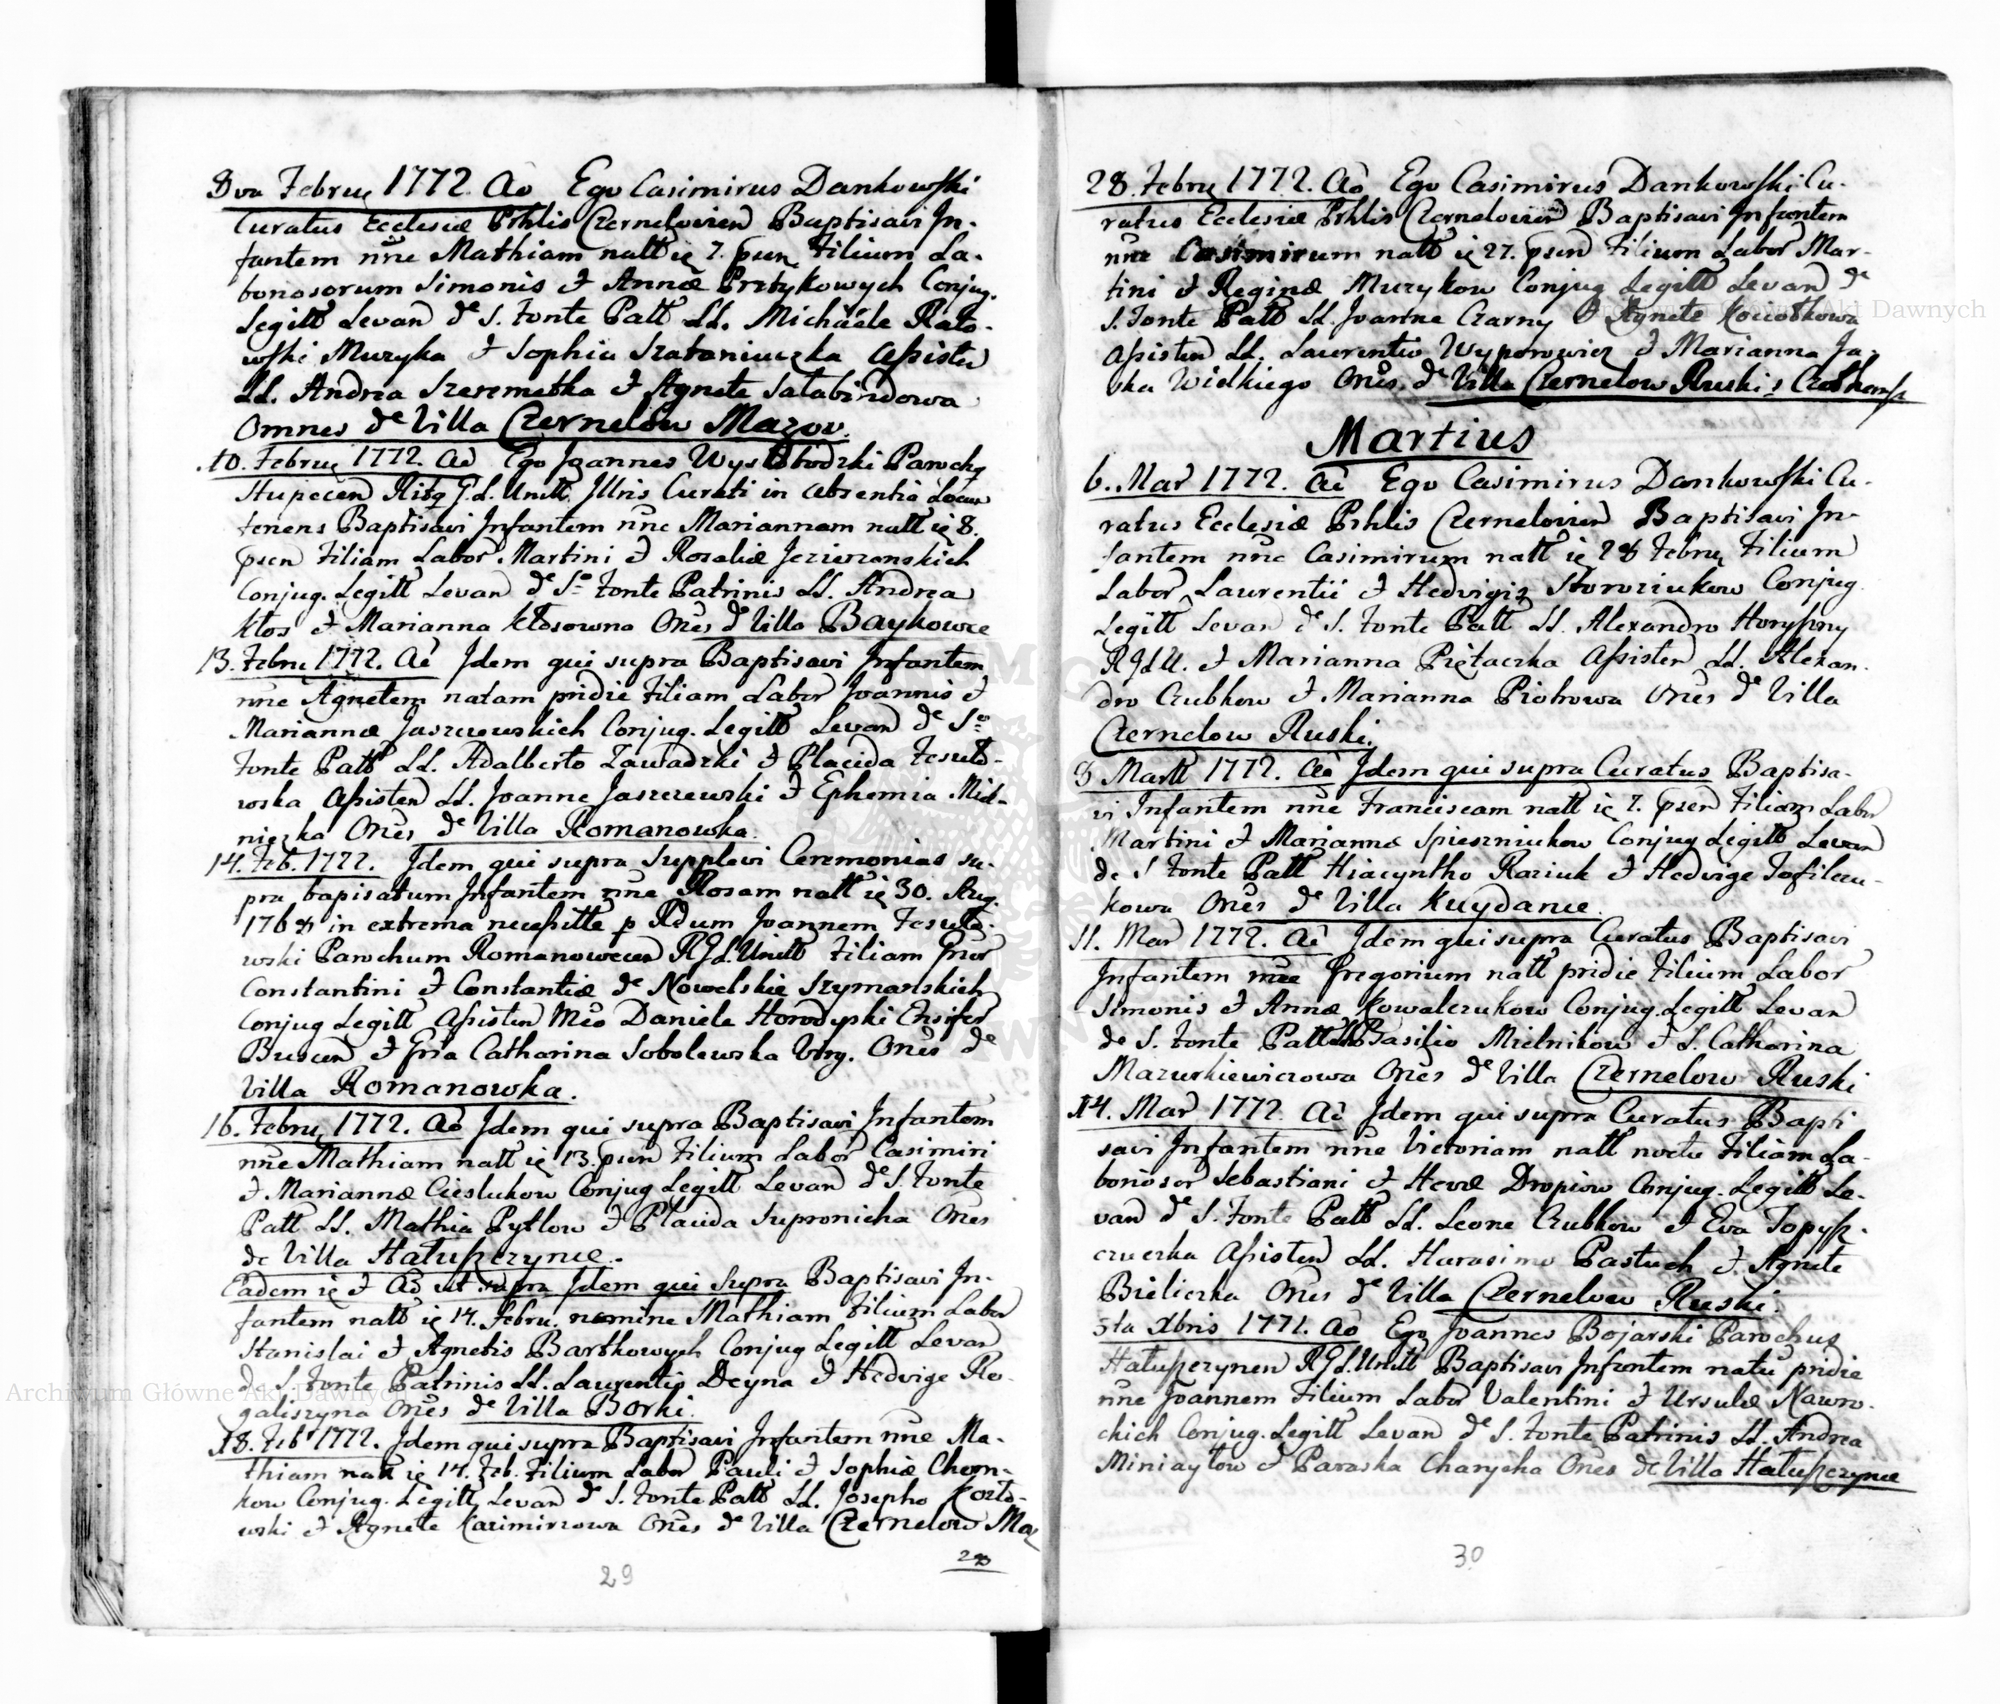 8va Febru 1772. Aò Ego Casimirus Dankowski
Curatus Ecclesiæ Prhlis Czernelovien Baptisavi In-
fantem nne Mathiam natt ię 7. psen Filium La-
bonosorum Simonis & Annæ Przbykowych Conjug.
Legitt Levan de S. Fonte Patt LL. Michaele Rato-
wski Muzyka & Sophia Szataniuczka Assisten
LL. Andrea Szeremetka & Agnete Satabindowa
Omnes de Villa Czernelow Mazov.
10. Febru 1772. Aò Ego Joannes Wyslobodzki Parochg
Stupecen Ritg G.L. Unitt Illris Curati in absentia Locum
tenens Baptisavi Infantem nne Mariannam natt ię 8.
psen Filiam Labor Martini & Rosaliæ Jezierzanskich
Conjug. Legitt Levan de So Fonte Patrinis LL. Andrea
Kłos & Marianna Kłosowna Ones de Villa Baykowce
13. Febru 1772. Aò Idem qui supra Baptisavi Infantem
nne Agnetem natam pridie Filiam Labor Joannis &
Mariannæ Jaszczewskich Conjug. Legitt Levan de So
Fonte Patt LL. Adalberto Zawadzki & Placida Fesuto-
roska Assisten LL. Joanne Jaszczewski & Ephemia Miel-
niczka Ones de Villa Romanowka.
14. Feb. 1772. Idem qui supra Supplevi Ceremonias su-
pra bapisatum Infantem nne Rosam natt ię 30. Aug.
1768 in extrema necessitte p Rdum Joannem Fesuto-
wski Parochum Romanowecen RGL. Unitt Filiam Gnsor
Constantini & Constantiæ de Nowelskie Szymanskich
Conjug Legitt Assisten Mco Daniele Horodyski Ensifer
Buscen & Gnsa Catharina Sobolewska Virg. Ones de
Villa Romanowka.
16. Febru 1772. Aò Idem qui supra Baptisavi Infantem
nne Mathiam natt ię 13. psen Filium Labor Casimiri
& Mariannæ Cieslukow Conjug Legitt Levan de S. Fonte
Patt LL. Mathia Pytlow & Placida Supronicha Ones
de Villa Hałuszczynce.
Eadem ię & Aò ut supra Idem qui Supra Baptisavi In-
fantem natt ię 14. Febru. nomine Mathiam Filium Labor
Stanislai & Agnetis Bartkowych Conjug Legitt Levan
de S. Fonte Patrinis LL. Laurentio Deyna & Hedvige Ro-
galiszyna Ones de Villa Borki.
18. Feb 1772. Idem qui supra Baptisavi Infantem nne Ma-
thiam natt ię 14. Feb. Filium Labor Pauli & Sophiæ Chom-
kow Conjug. Legitt Levan de S. Fonte Patt LL. Josepho Kozło-
wski & Agnete Kazimirzowa Ones de Villa Czernelow Maz
29
28. Febru 1772. Aò Ego Casimirus Dankowski Cu-
ratus Ecclesiæ Prhlis Czernelovien Baptisavi Infantem
nne Casimirum natt ię 27. psen Filium Labor Mar-
tini & Reginæ Muzykow Conjug Legitt Levan de
S. Fonte Patt LL. Joanne Czarny & Agnete Kociołkowa
Assisten LL. Laurentio Wyporowicz & Marianna Ja-
ska Wielkiego Ones. de Villa Czernelow Ruski
Martius
6. Mar 1772. Aò Ego Casimirus Dankowski Cu-
ratus Ecclesiæ Prhlis Czernelovien Baptisavi In-
fantem nne Casimirum natt ię 28 Febru Filium
Labor Laurentii & Hedvigis Storoziukow Conjug.
Legitt Levan de S. Fonte Patt LL. Alexandro Horyssny
RGLU. & Marianna Piętaczka Assisten LL. Alexan-
dro Czubkow & Marianna Piotrowa Ones de Villa
Czernelow Ruski.
8 Martt 1772. Aò Idem qui supra Curatus Baptisa-
vi Infantem nne Franciscam natt ię 7. psen Filiam Labor
Martini & Mariannæ Spieszniukow Conjug Legitt Levan
de S Fonte Patt Hiacyntho Raziuk & Hedvige Tofilczu-
kowa Ones de Villa Kuydance.
11. Mar 1772. Aò Idem qui supra Curatus Baptisavi
Infantem nne Gregorium natt pridie Filium Labor
Simonis & Annæ Kowalczukow Conjug. Legitt Levan
de S. Fonte Patt LL Basilio Mielnikow & S. Catharina
Mazurkiewiczowa Ones de Villa Czernelow Ruski
14. Mar 1772. Aò Idem qui supra Curatus Bapti
savi Infantem nne Victoriam natt noctu Filiam La-
boriosor Sebastiani & Hevæ Dropiow Conjug. Legitt Le-
van de S. Fonte Patt LL. Leone Czubkow & Eva Topysz-
czuczka Assisten LL. Harasimo Pastuch & Agnete
Bieliczka Ones de Villa Czernelow Ruski.
5ta Xbris 1771. Aò Ego Joannes Bojarski Parochus
Hałuszczynen RGL. Unitt Baptisavi Infantem natu pridie
nne Joannem Filium Labor Valentini & Ursulæ Nawro-
ckich Conjug. Legitt Levan de S. Fonte Patrinis LL. Andrea
Miniaytow & Paraska Charycha Ones de Villa Hałuszczynce
30
Archiwum Główne Akt Dawnych